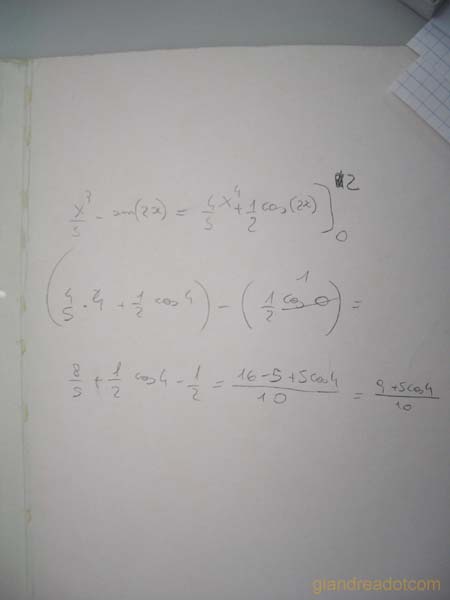 x³/5 - sen(2x) = 4/5 x⁴ + 1/2 cos(2x) ]₀²
(4/5 · 4 + 1/2 cos 4) - (1/2 cos 0) = 1
8/5 + 1/2 cos 4 - 1/2 = 16-5+5cos4/10 = 9+5cos4/10
giandreadotcom